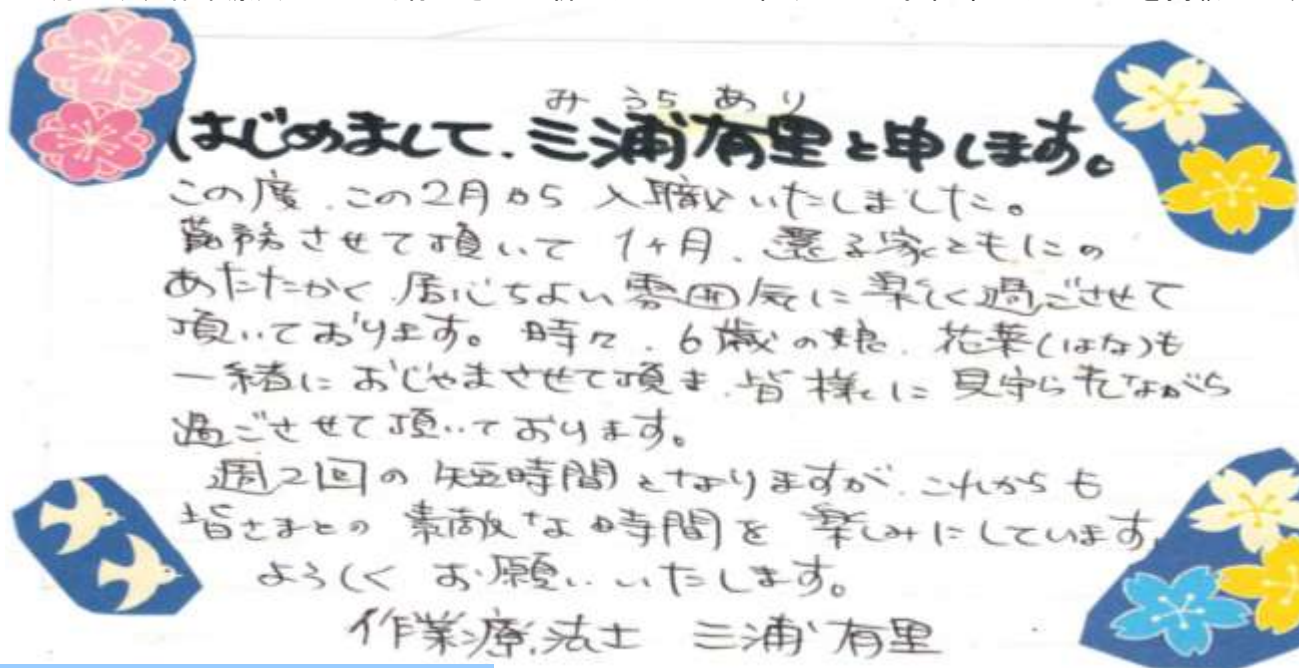 みうら あり
はじめまして、三浦有里と申します。
この度、この2月から入職いたしました。
勤務させて頂いて 1ヶ月、還る家ともにの
あたたかく居心ちよい雰囲気に楽しく過ごさせて
頂いております。時々、6歳の娘、花菜(はな)も
一緒におじゃまさせて頂き、皆様に見守られながら
過ごさせて頂いております。
週2回の短時間となりますが、これからも
皆さまとの素敵な時間を楽しみにしています。
よろしくお願いいたします。
作業療法士 三浦有里